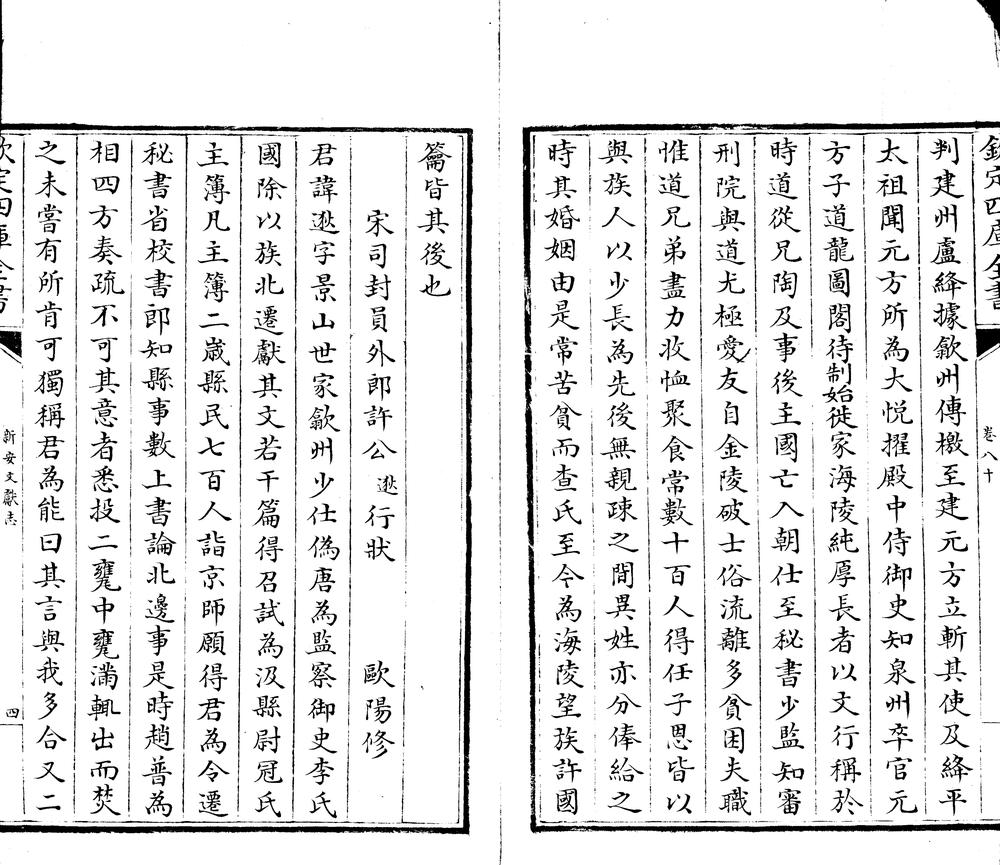 欽定四庫全書
卷八十
判建州盧絳據歙州傳檄至建元方立斬其使及絳平
太祖聞元方所為大悦擢殿中侍御史知泉州卒官元
方子道龍圖閣待制始徙家海陵純厚長者以文行稱於
時道從兄陶及事後主國亡入朝仕至秘書少監知審
刑院與道尤極愛友自金陵破士俗流離多貧困夫職
惟道兄弟盡力收恤聚食常數十百人得任子恩皆以
與族人以少長為先後無親疎之間異姓亦分俸給之
時其婚姻由是常苦貧而查氏至今為海陵望族許國
籥皆其後也
宋司封員外郎許公逖行狀 歐陽修
君諱逖字景山世家歙州少仕偽唐為監察御史李氏
國除以族北遷獻其文若干篇得召試為汲縣尉冠氏
主簿凡主簿二歲縣民七百人詣京師願得君為令遷
秘書省校書郎知縣事數上書論北邊事是時趙普為
相四方奏疏不可其意者悉投二甕中甕滿輒出而焚
之未嘗有所肯可獨稱君為能曰其言與我多合又二
欽定四庫全書
新安文獻志
四